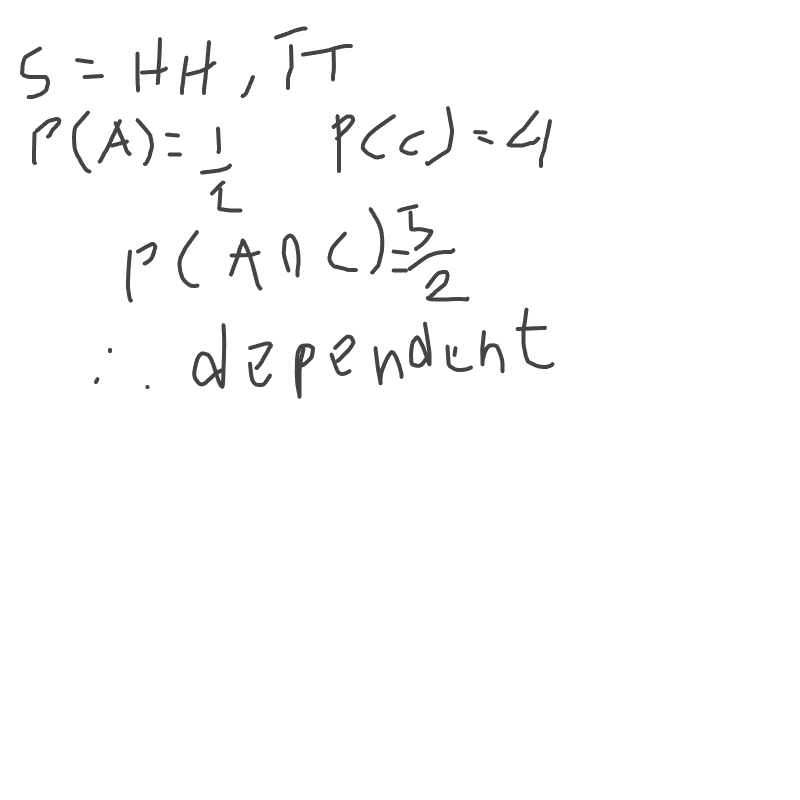 S = HH, TT
P(A) = 1/2 P(C) = 4
P(A ∩ C) = 5/2
∴ dependent